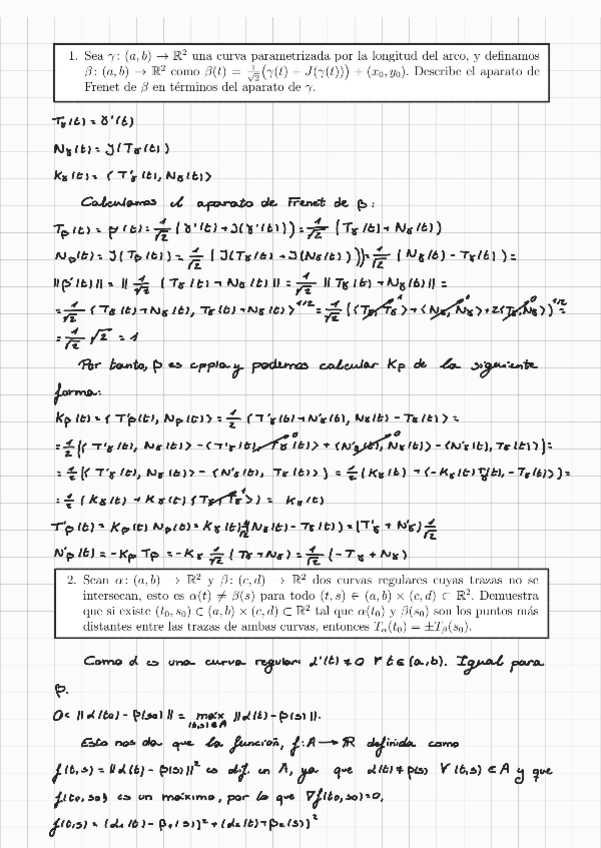 1. Sea γ: (a, b) → ℝ² una curva parametrizada por la longitud del arco, y definamos
β: (a, b) → ℝ² como β(t) = 1/√2 (γ(t) + J(γ(t))) + (x₀, y₀). Describe el aparato de
Frenet de β en términos del aparato de γ.
Tγ(t) = γ'(t)
Nγ(t) = J(Tγ(t))
Kγ(t) = ⟨T'γ(t), Nγ(t)⟩
Calculamos el aparato de Frenet de β:
Tβ(t) = β'(t) = 1/√2 (γ'(t) + J(γ'(t))) = 1/√2 (Tγ(t) + Nγ(t))
Nβ(t) = J(Tβ(t)) = 1/√2 (J(Tγ(t) + J(Nγ(t)))) = 1/√2 (Nγ(t) - Tγ(t)) =
||β'(t)|| = || 1/√2 (Tγ(t) + Nγ(t)) || = 1/√2 || Tγ(t) + Nγ(t) || =
= 1/√2 ⟨Tγ(t) + Nγ(t), Tγ(t) + Nγ(t)⟩^1/2 = 1/√2 (⟨Tγ, Tγ⟩ + ⟨Nγ, Nγ⟩ + 2⟨Tγ, Nγ⟩)^1/2 =
= 1/√2 √2 = 1
Por tanto, β es cppla y podemos calcular Kβ de la siguiente
forma:
Kβ(t) = ⟨T'β(t), Nβ(t)⟩ = 1/2 ⟨T'γ(t) + N'γ(t), Nγ(t) - Tγ(t)⟩ =
= 1/2 (⟨T'γ(t), Nγ(t)⟩ - ⟨T'γ(t), Tγ(t)⟩ + ⟨N'γ(t), Nγ(t)⟩ - ⟨N'γ(t), Tγ(t)⟩) =
= 1/2 (⟨T'γ(t), Nγ(t)⟩ - ⟨N'γ(t), Tγ(t)⟩) = 1/2 (Kγ(t) + ⟨-Kγ(t)Tγ(t), -Tγ(t)⟩) =
= 1/2 (Kγ(t) + Kγ(t) ⟨Tγ, Tγ⟩) = Kγ(t)
T'β(t) = Kβ(t) Nβ(t) = Kγ(t) 1/√2 (Nγ(t) - Tγ(t)) = (T'γ + N'γ) 1/√2
N'β(t) = -Kβ Tβ = -Kγ 1/√2 (Tγ + Nγ) = 1/√2 (-Tγ + Nγ)
2. Sean α: (a, b) → ℝ² y β: (c, d) → ℝ² dos curvas regulares cuyas trazas no se
intersecan, esto es α(t) ≠ β(s) para todo (t, s) ∈ (a, b) × (c, d) ⊂ ℝ². Demuestra
que si existe (t₀, s₀) ⊂ (a, b) × (c, d) ⊂ ℝ² tal que α(t₀) y β(s₀) son los puntos más
distantes entre las trazas de ambas curvas, entonces Tα(t₀) = ±Tβ(s₀).
Como α es una curva regular α'(t) ≠ 0 ∀ t ∈ (a, b). Igual para
β.
0 < ||α(t₀) - β(s₀)|| = máx (t,s)∈A ||α(t) - β(s)||.
Esto nos da que la función, f: A → ℝ definida como
f(t,s) = ||α(t) - β(s)||² es dif. en A, ya que α(t) ≠ β(s) ∀ (t,s) ∈ A y que
f(t₀, s₀) es un máximo, por lo que ∇f(t₀, s₀) = 0,
f(t,s) = (α₁(t) - β₁(s))² + (α₂(t) - β₂(s))²